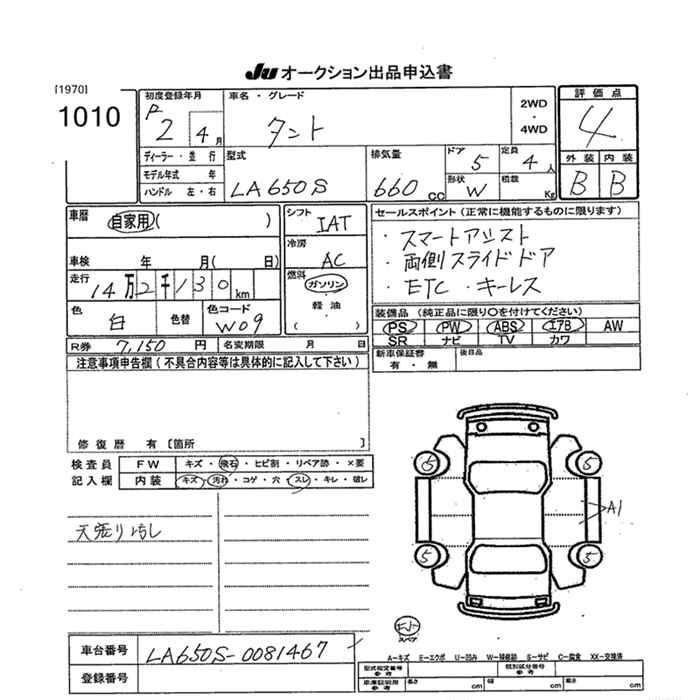 JU オークション出品申込書
[1970]
1010
初度登録年月
R 2 4月
車名・グレード
タント
2WD
・
4WD
評価点
4
ディーラー・並行
モデル年式 年
ハンドル 左・右
型式
LA650S
排気量
660 CC
ドア 5
定員 4人
形状 W
積載 Kg
外装 内装
B B
車歴 自家用( )
車検 年 月( 日)
走行
14万2千130km
シフト
IAT
冷房
AC
燃料
ガソリン
・
軽油
・
( )
セールスポイント(正常に機能するものに限ります)
・スマートアシスト
・両側スライドドア
・ETC ・キーレス
色 白 色替 色コード W09
装備品(純正品に限り〇を付けてください)
PS PW ABS エアB AW
SR ナビ TV カワ
R券 7,150円 名変期限 月 日
新車保証書 有・無 後日品
注意事項申告欄(不具合内容等は具体的に記入して下さい)
修復歴 有[箇所 ]
検査員 FW キズ・飛石・ヒビ割・リペア跡・×要
記入欄 内装 キズ・汚れ・コゲ・穴・スレ・キレ・破レ
5 5
A1
5 5
スペア
車台番号 LA650S-0081467
登録番号
A-キズ E-エクボ U-凹み W-補修跡 S-サビ C-腐食 XX-交換済
型式指定番号 参考 類別区分番号 参考
車庫証明用 参考 長さ cm 幅 cm 高さ cm